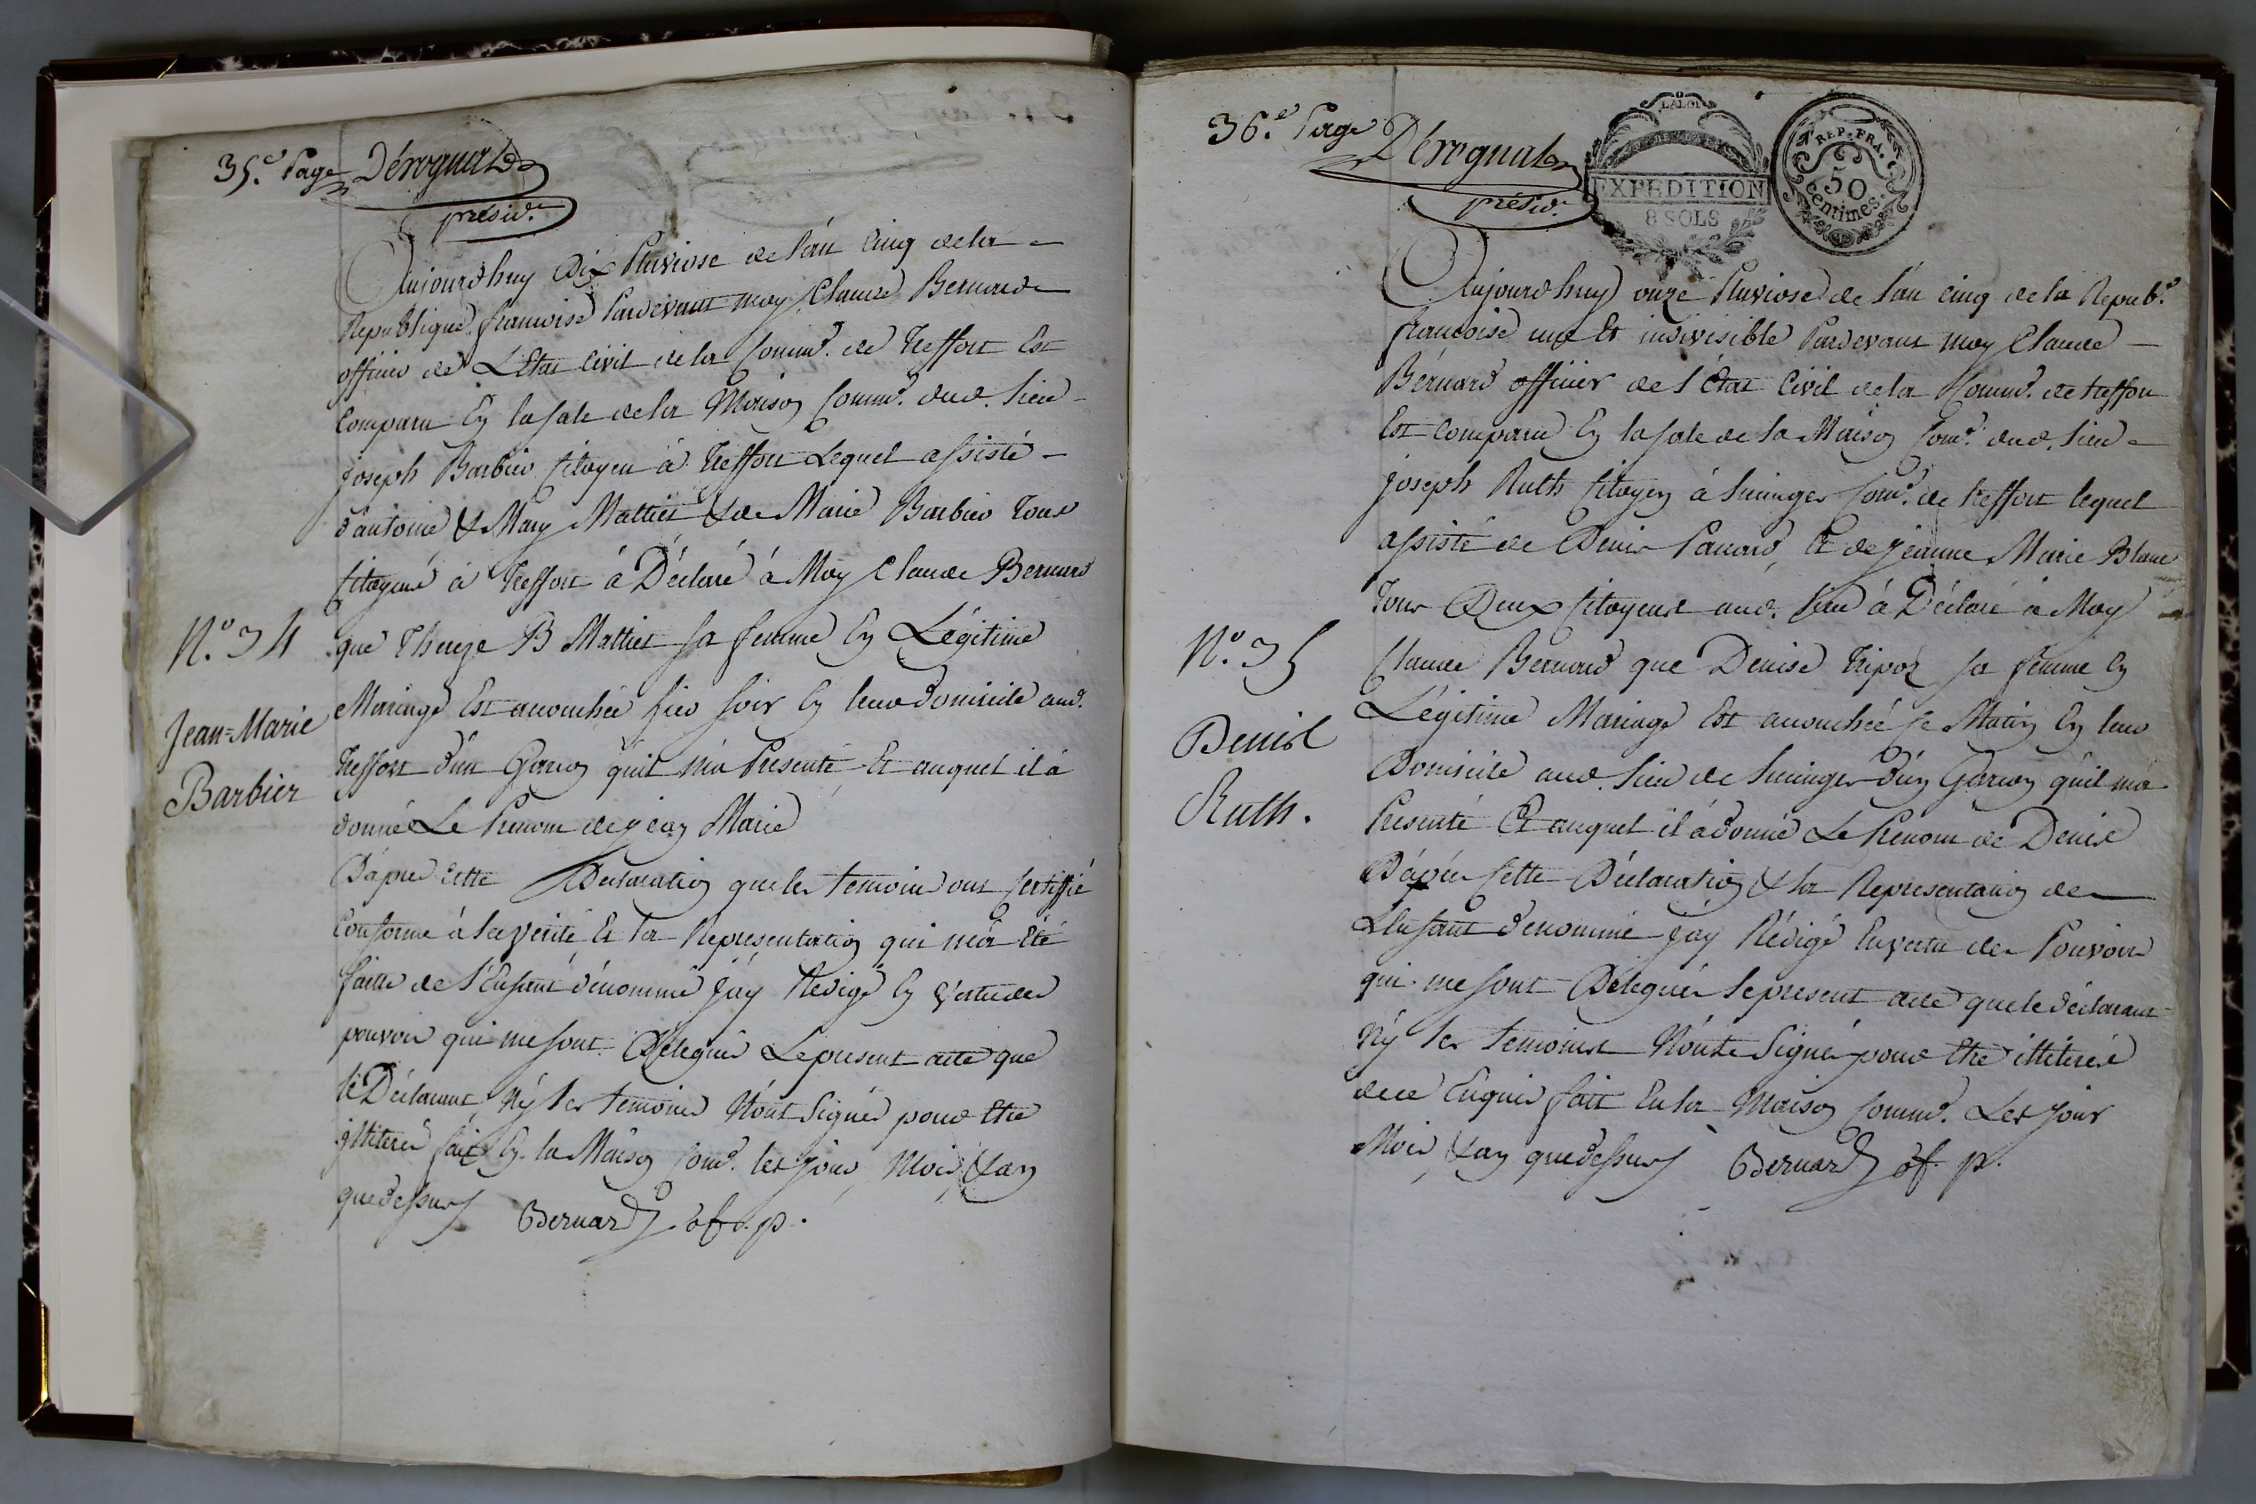 35.e Page Dérognat
présid.
Aujourdhuy Dix Pluviose de l'an Cinq de la
Republique françoise Pardevant moy Claude Bernard
officier de L'Etat Civil de la Comm.e de Treffort Est
Comparu En la sale de la Maison Comm.e dud. lieu
joseph Barbier Citoyen à Treffort Lequel assisté
d'antoine & Mary Mattiet & de Marie Barbier Tous
Citoyens à Treffort à Déclaré à Moy Claude Bernard
N.o 34
que Thereze B Mattiet sa femme En Légitime
Mariage Est accouchée hier soir En leur domicile aud.
Jean=Marie
Barbier
Treffort d'un Garcon qu'il m'a Presenté Et auquel il à
donné Le Prenom de jean Marie
D'apres Cette Declaration que les temoins ont Certiffié
Conforme à la vérité Et la Representation qui m'a Eté
faitte de l'Enfant dénommé j'ay Redigé En vertu des
pouvoirs qui me sont Délegués Le present acte que
le Déclarant Ny les temoins N'ont Signés pour Etre
illiterés fait En la Maison Com.e les jour, Mois & an
que dessus Bernard of. p.
36.e Page
Dérognat
présid.
LA LOI
EXPEDITION
8 SOLS
REP. FRA.
50
Centimes.
Aujourdhuy onze Pluviose de l'an cinq de la Repub.e
françoise une Et indivisible Pardevant moy Claude
Bérnard officier de l'Etat Civil de la Comm.e de treffort
Est Comparu En la sale de la Maison Com.e dud. lieu
joseph Ruth Citoyen à Com.e de treffort lequel
assisté de Denis Et de jeanne Marie Blanc
Tous Deux Citoyens aud. lieu à Déclaré à Moy
N.o 35
Claude Bernard que Denise Tripoz sa femme En
Légitime Mariage Est accouchée Ce Matin En leur
Denis
Ruth.
Domicile aud. lieu de d'un Garcon qu'il m'a
Presenté Et auquel il à donné Le Prenom de Denis
D'après Cette Déclaration & la Representation de
L'Enfant dénommé j'ay Rédigé En vertu des Pouvoirs
qui me sont Délegués le present acte que le déclarant
Ny les temoins N'ont Signés pour Etre illiterés
de ce Enquis fait En la Maison Comm.e Les jour
Mois, & an que dessus Bernard of. p.